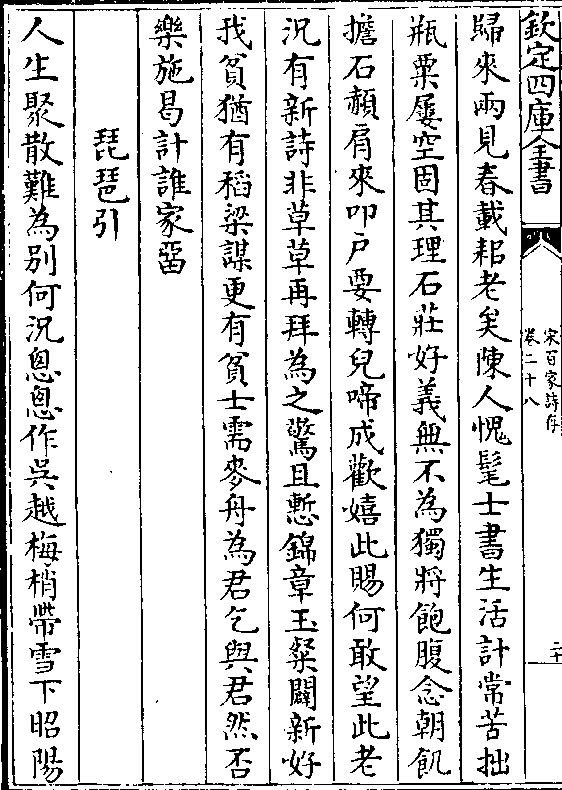 欽定四庫全書
宋百家詩存
卷二十八
二十
歸來兩見春載耜老矣陳人愧髦士書生活計常苦拙
瓶粟屢空固其理石莊好義無不為獨將飽腹念朝飢
擔石赬肩來叩戶要轉兒啼成歡嬉此賜何敢望此老
況有新詩非草草再拜為之驚且慙錦章玉粲鬬新好
我貧猶有稻梁謀更有貧士需麥舟為君乞與君然否
樂施曷計誰家畱
琵琶引
人生聚散難為別何況悤悤作吳越梅梢帶雪下昭陽